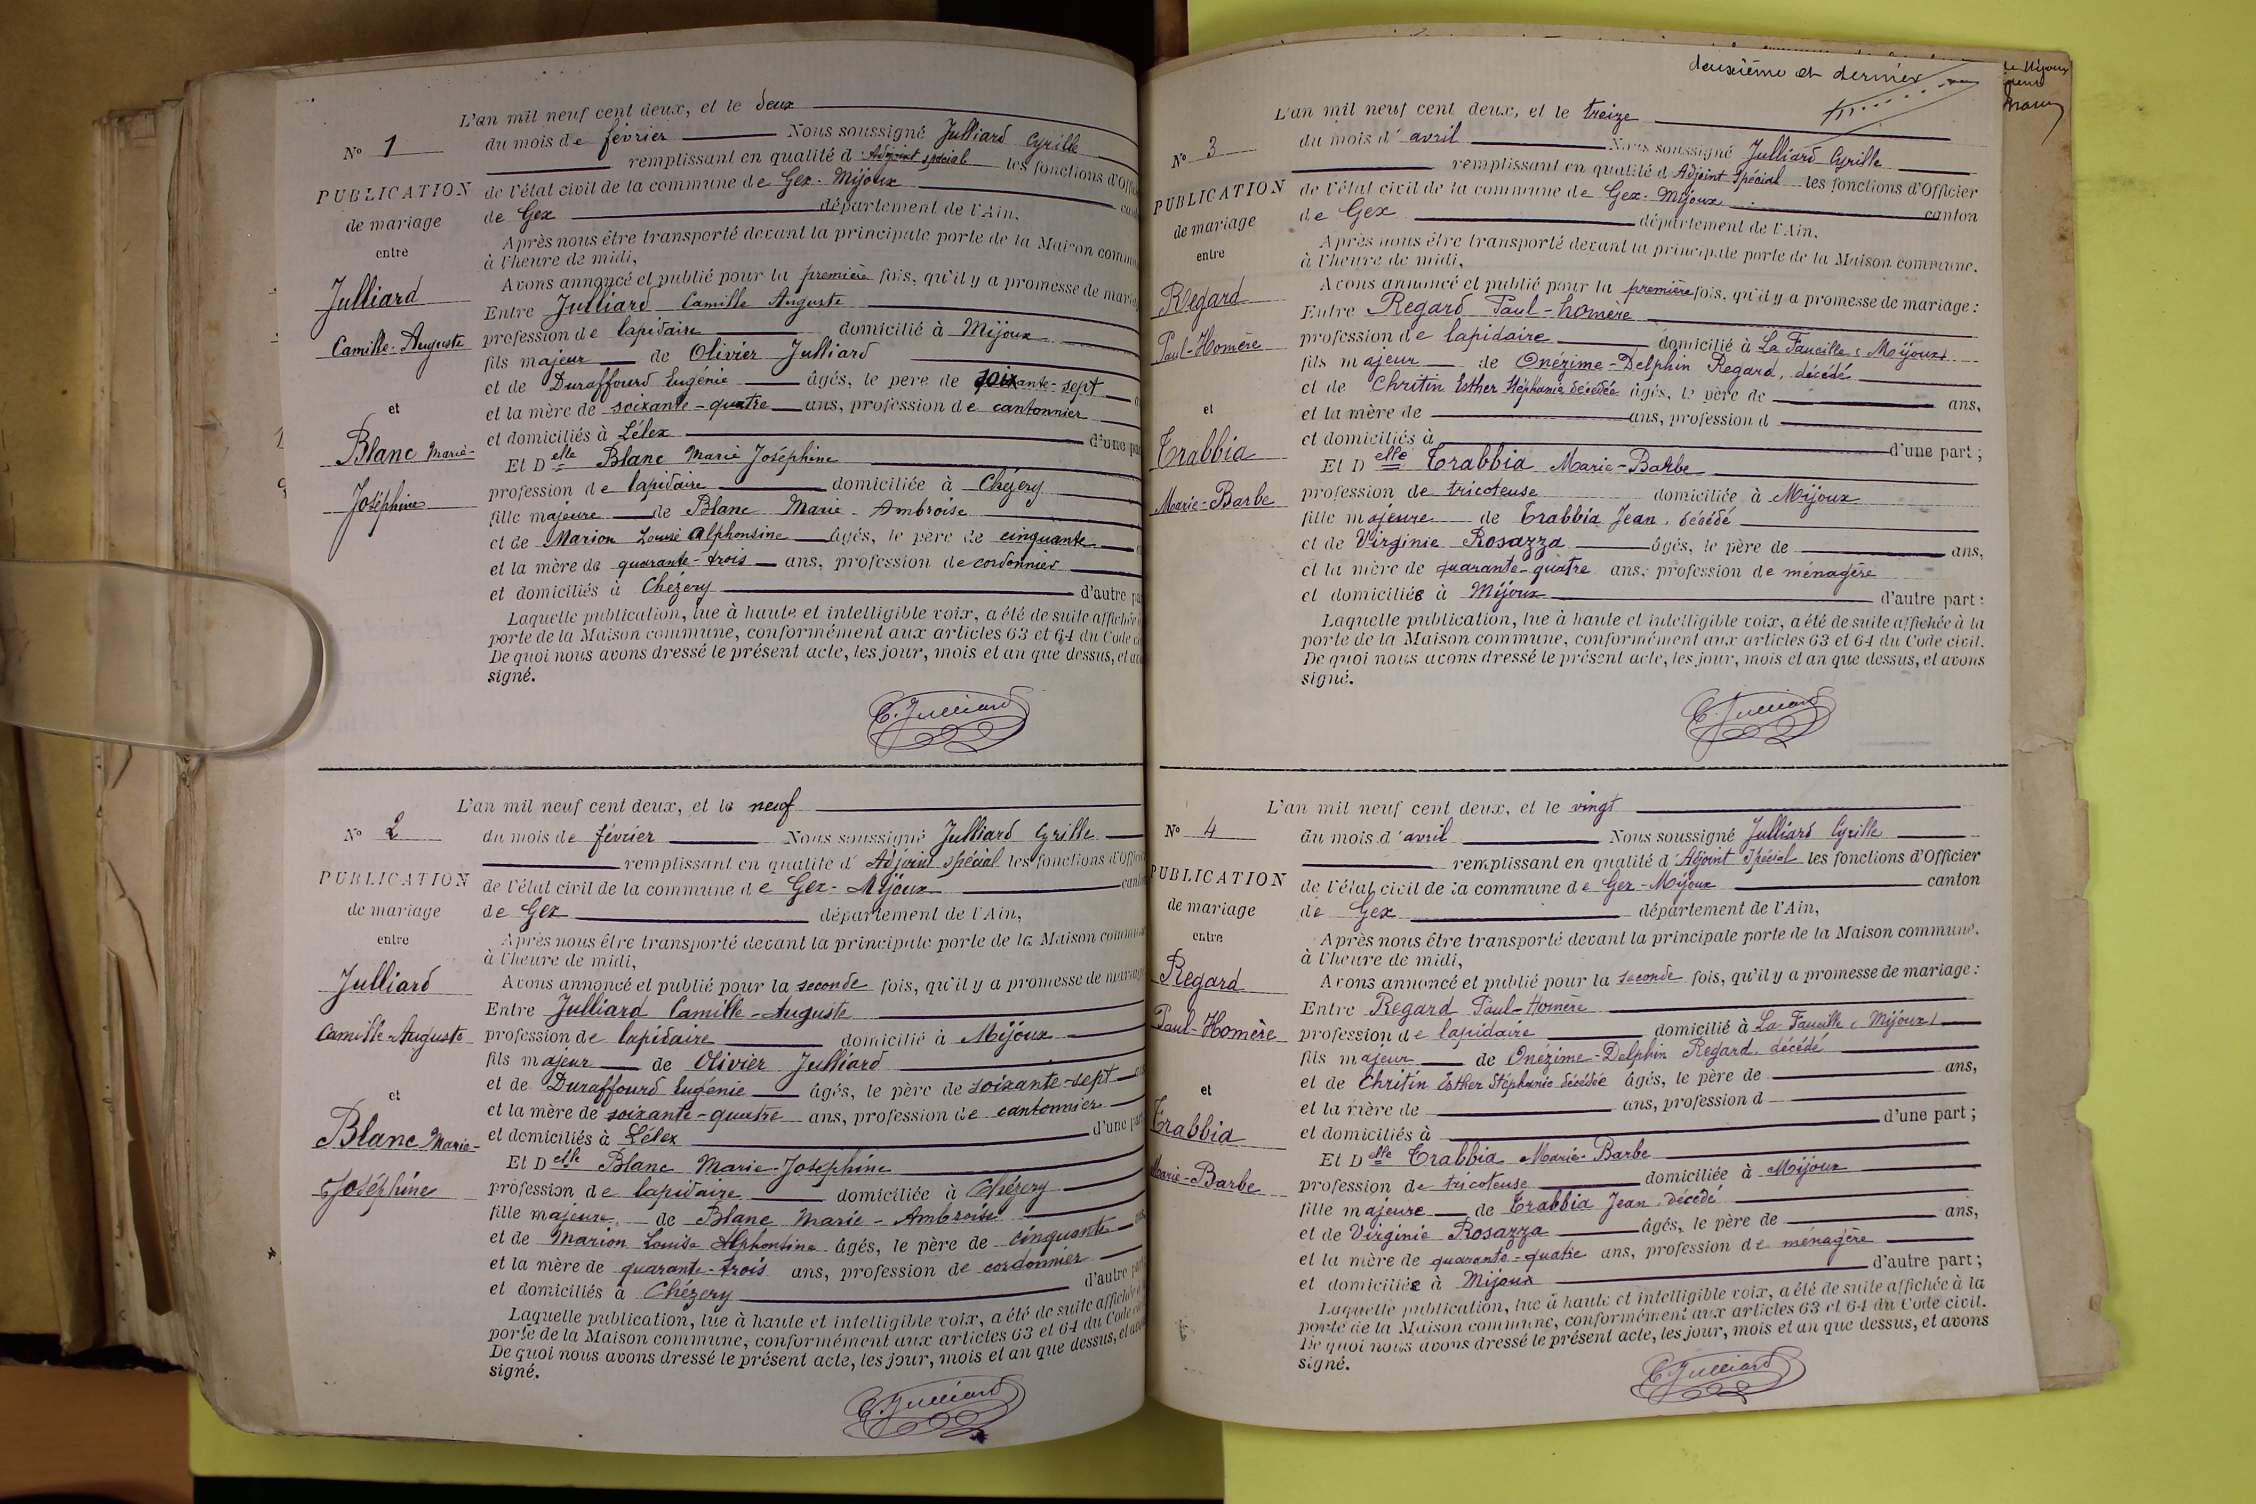 L'an mil neuf cent deux, et le deux
N° 1
du mois de février Nous soussigné Julliard Cyrille
remplissant en qualité d'Adjoint spécial les fonctions d'Offi
PUBLICATION
de l'état civil de la commune de Gex-Mijoux can
de mariage
de Gex département de l'Ain.
entre
Après nous être transporté devant la principale porte de la Maison commu
à l'heure de midi,
Avons annoncé et publié pour la première fois, qu'il y a promesse de maria
Julliard
Entre Julliard Camille Auguste
Camille-Auguste
profession de lapidaire domicilié à Mijoux
fils majeur de Olivier Julliard
et de Duraffourd Eugénie âgés, le père de soixante-sept
et
et la mère de soixante-quatre ans, profession de cantonnier
et domiciliés à Lélex d'une par
Blanc Marie-
Et Delle Blanc Marie Joséphine
Joséphine
profession de lapidaire domiciliée à Chézery
fille majeure de Blanc Marie-Ambroise
et de Marion Louise Alphonsine âgés, le père de cinquante
et la mère de quarante-trois ans, profession de cordonnier
et domiciliés à Chézery d'autre pa
Laquelle publication, lue à haute et intelligible voix, a été de suite affichée
porte de la Maison commune, conformément aux articles 63 et 64 du Code c
De quoi nous avons dressé le présent acte, les jour, mois et an que dessus, et av
signé.
C. Julliard
L'an mil neuf cent deux, et le neuf
N° 2
du mois de février Nous soussigné Julliard Cyrille
remplissant en qualité d'Adjoint spécial les fonctions d'Offici
PUBLICATION
de l'état civil de la commune de Gex-Mijoux canto
de mariage
de Gex département de l'Ain,
entre
Après nous être transporté devant la principale porte de la Maison commu
à l'heure de midi,
Julliard
Avons annoncé et publié pour la seconde fois, qu'il y a promesse de mariag
Entre Julliard Camille-Auguste
Camille-Auguste
profession de lapidaire domicilié à Mijoux
fils majeur de Olivier Julliard
et de Duraffourd Eugénie âgés, le père de soixante-sept ans
et
et la mère de soixante-quatre ans, profession de cantonnier
et domiciliés à Lélex d'une par
Blanc Marie-
Et Delle Blanc Marie-Joséphine
Joséphine
profession de lapidaire domiciliée à Chézery
fille majeure de Blanc Marie-Ambroise
et de Marion Louise Alphonsine âgés, le père de cinquante ans
et la mère de quarante-trois ans, profession de cordonnier
et domiciliés à Chézery d'autre par
Laquelle publication, lue à haute et intelligible voix, a été de suite affichée
porte de la Maison commune, conformément aux articles 63 et 64 du Code
De quoi nous avons dressé le présent acte, les jour, mois et an que dessus, et av
signé.
C. Julliard
deuxième et dernier
L'an mil neuf cent deux, et le treize
N° 3
du mois d'avril Nous soussigné Julliard Cyrille
remplissant en qualité d'Adjoint spécial les fonctions d'Officier
PUBLICATION
de l'état civil de la commune de Gex-Mijoux canton
de mariage
de Gex département de l'Ain.
entre
Après nous être transporté devant la principale porte de la Maison commune.
à l'heure de midi,
Avons annoncé et publié pour la première fois, qu'il y a promesse de mariage :
Regard
Entre Regard Paul-homère
Paul-Homère
profession de lapidaire domicilié à La Faucille (Mijoux)
fils majeur de Onézime-Delphin Regard, décédé
et de Chritin Esther Stéphanie décédée âgés, le père de ans,
et
et la mère de ans, profession d
et domiciliés à d'une part ;
Trabbia
Et Delle Trabbia Marie-Barbe
Marie-Barbe
profession de tricoteuse domiciliée à Mijoux
fille majeure de Trabbia Jean, décédé
et de Virginie Rosazza âgés, le père de ans,
et la mère de quarante-quatre ans, profession de ménagère
et domiciliée à Mijoux d'autre part :
Laquelle publication, lue à haute et intelligible voix, a été de suite affichée à la
porte de la Maison commune, conformément aux articles 63 et 64 du Code civil.
De quoi nous avons dressé le présent acte, les jour, mois et an que dessus, et avons
signé.
C. Julliard
L'an mil neuf cent deux, et le vingt
N° 4
du mois d'avril Nous soussigné Julliard Cyrille
remplissant en qualité d'Adjoint spécial les fonctions d'Officier
PUBLICATION
de l'état civil de la commune de Gex-Mijoux canton
de mariage
de Gex département de l'Ain,
entre
Après nous être transporté devant la principale porte de la Maison commune.
à l'heure de midi,
Regard
Avons annoncé et publié pour la seconde fois, qu'il y a promesse de mariage :
Entre Regard Paul-Homère
Paul-Homère
profession de lapidaire domicilié à La Faucille (Mijoux)
fils majeur de Onézime-Delphin Regard, décédé
et de Chritin Esther Stéphanie décédée âgés, le père de ans,
et
et la mère de ans, profession d
et domiciliés à d'une part ;
Trabbia
Et Delle Trabbia Marie-Barbe
Marie-Barbe
profession de tricoteuse domiciliée à Mijoux
fille majeure de Trabbia Jean, décédé
et de Virginie Rosazza âgés, le père de ans,
et la mère de quarante-quatre ans, profession de ménagère
et domiciliée à Mijoux d'autre part ;
Laquelle publication, lue à haute et intelligible voix, a été de suite affichée à la
porte de la Maison commune, conformément aux articles 63 et 64 du Code civil.
De quoi nous avons dressé le présent acte, les jour, mois et an que dessus, et avons
signé.
C. Julliard